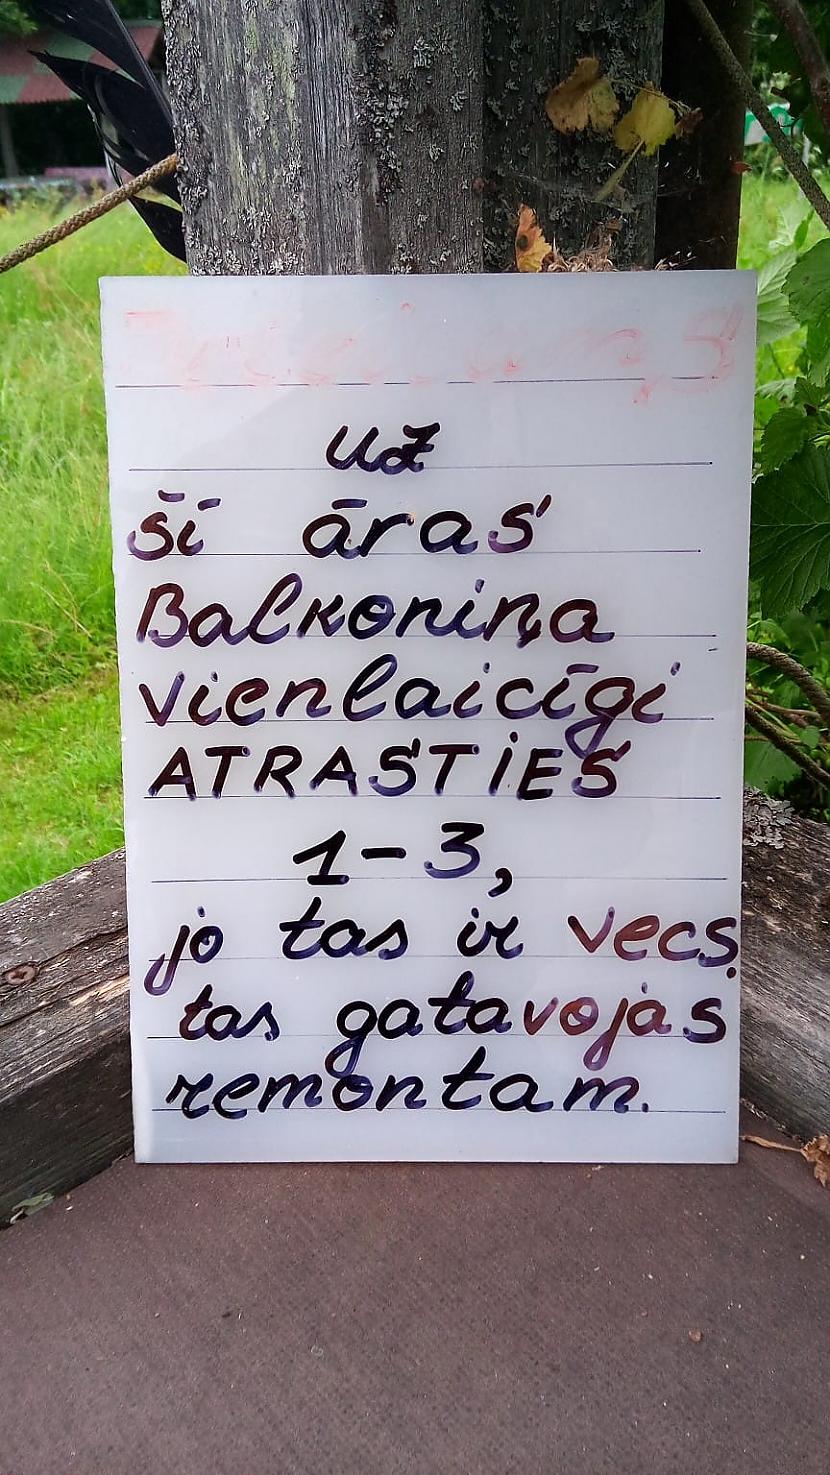 uz
šī āras
Balkoniņa
vienlaicīgi
ATRASTiES
1-3,
jo tas ir vecs,
tas gatavojas
remontam.